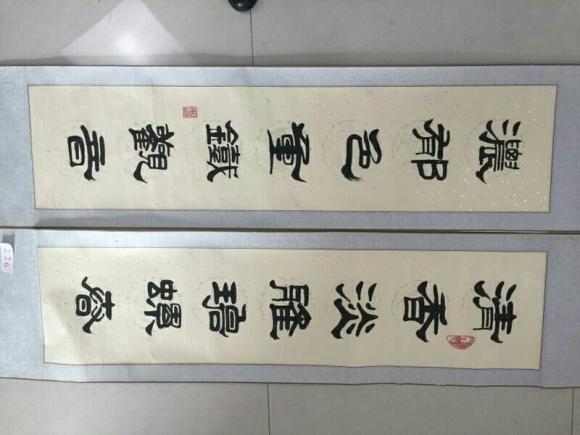 清香淡雅碧螺春
濃郁色重鐵觀音
226